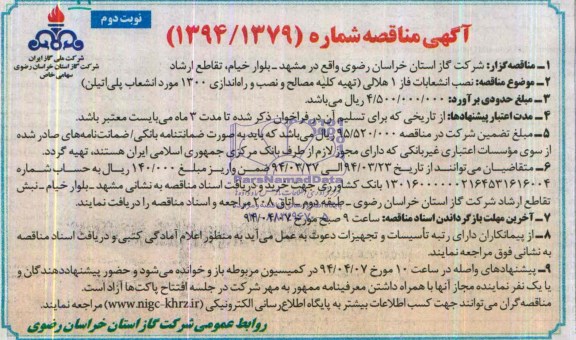 نوبت دوم
آگهی مناقصه شماره (۱۳۹۴/۱۳۷۹)
شرکت ملی گاز ایران
شرکت گاز استان خراسان رضوی
سهامی خاص
۱ـ مناقصه‌گزار: شرکت گاز استان خراسان رضوی واقع در مشهد ـ بلوار خیام، تقاطع ارشاد
۲ـ موضوع مناقصه: نصب انشعابات فاز ۱ هلالی (تهیه کلیه مصالح و نصب و راه‌اندازی ۱۳۰۰ مورد انشعاب پلی‌اتیلن)
۳ـ مبلغ حدودی برآورد: ۴/۵۰۰/۰۰۰/۰۰۰ ریال می‌باشد.
۴ـ مدت اعتبار پیشنهادها: از تاریخی که برای تسلیم آن در فراخوان ذکر شده تا مدت ۳ ماه می‌بایست معتبر باشد.
۵ ـ مبلغ تضمین شرکت در مناقصه ۹۵/۵۲۰/۰۰۰ ریال می‌باشد که باید به صورت ضمانتنامه بانکی/ ضمانت‌نامه‌های صادر شده
از سوی مؤسسات اعتباری غیربانکی که دارای مجوز لازم از طرف بانک مرکزی جمهوری اسلامی ایران هستند، تهیه گردد.
۶ ـ متقاضیان می‌توانند از تاریخ ۹۴/۰۳/۲۳ الی ۹۴/۰۳/۲۷ ضمن واریز مبلغ ۱۴۰/۰۰۰ ریال به حساب شماره
۲۱۶۴۵۳۱۶۱۶۰۰۴ بانک کشاورزی جهت خرید و دریافت اسناد مناقصه به نشانی مشهد ـ بلوار خیام ـ نبش
تقاطع ارشاد شرکت گاز استان خراسان رضوی ـ طبقه دوم ـ اتاق ۲۰۸ مراجعه و اسناد مناقصه را دریافت نمایند.
۷ـ آخرین مهلت بازگرداندن اسناد مناقصه: ساعت ۹ صبح مورخ
۸ ـ از پیمانکاران دارای رتبه تأسیسات و تجهیزات دعوت به عمل می‌آید به منظور اعلام آمادگی کتبی و دریافت اسناد مناقصه
به نشانی فوق مراجعه نمایند.
۹ـ پیشنهادهای واصله در ساعت ۱۰ مورخ ۹۴/۰۴/۰۷ در کمیسیون مربوطه باز و خوانده می‌شود و حضور پیشنهاددهندگان و
یا یک نفر نماینده مجاز آنها با همراه داشتن معرفینامه ممهور به مهر شرکت در جلسه افتتاح پاکت‌ها آزاد است.
مناقصه‌گران می‌توانند جهت کسب اطلاعات بیشتر به پایگاه اطلاع‌رسانی الکترونیکی (www.nigc-khrz.ir) مراجعه نمایند.
روابط عمومی شرکت گاز استان خراسان رضوی
ParsNamadData